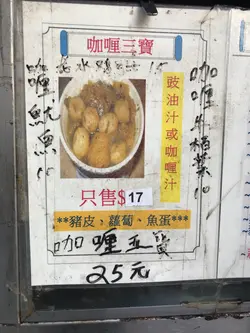 咖喱三寶
咖喱魷魚10
豉油汁或咖喱汁
咖喱牛栢葉10
只售$17
**豬皮、蘿蔔、魚蛋***
咖喱五寶
25元